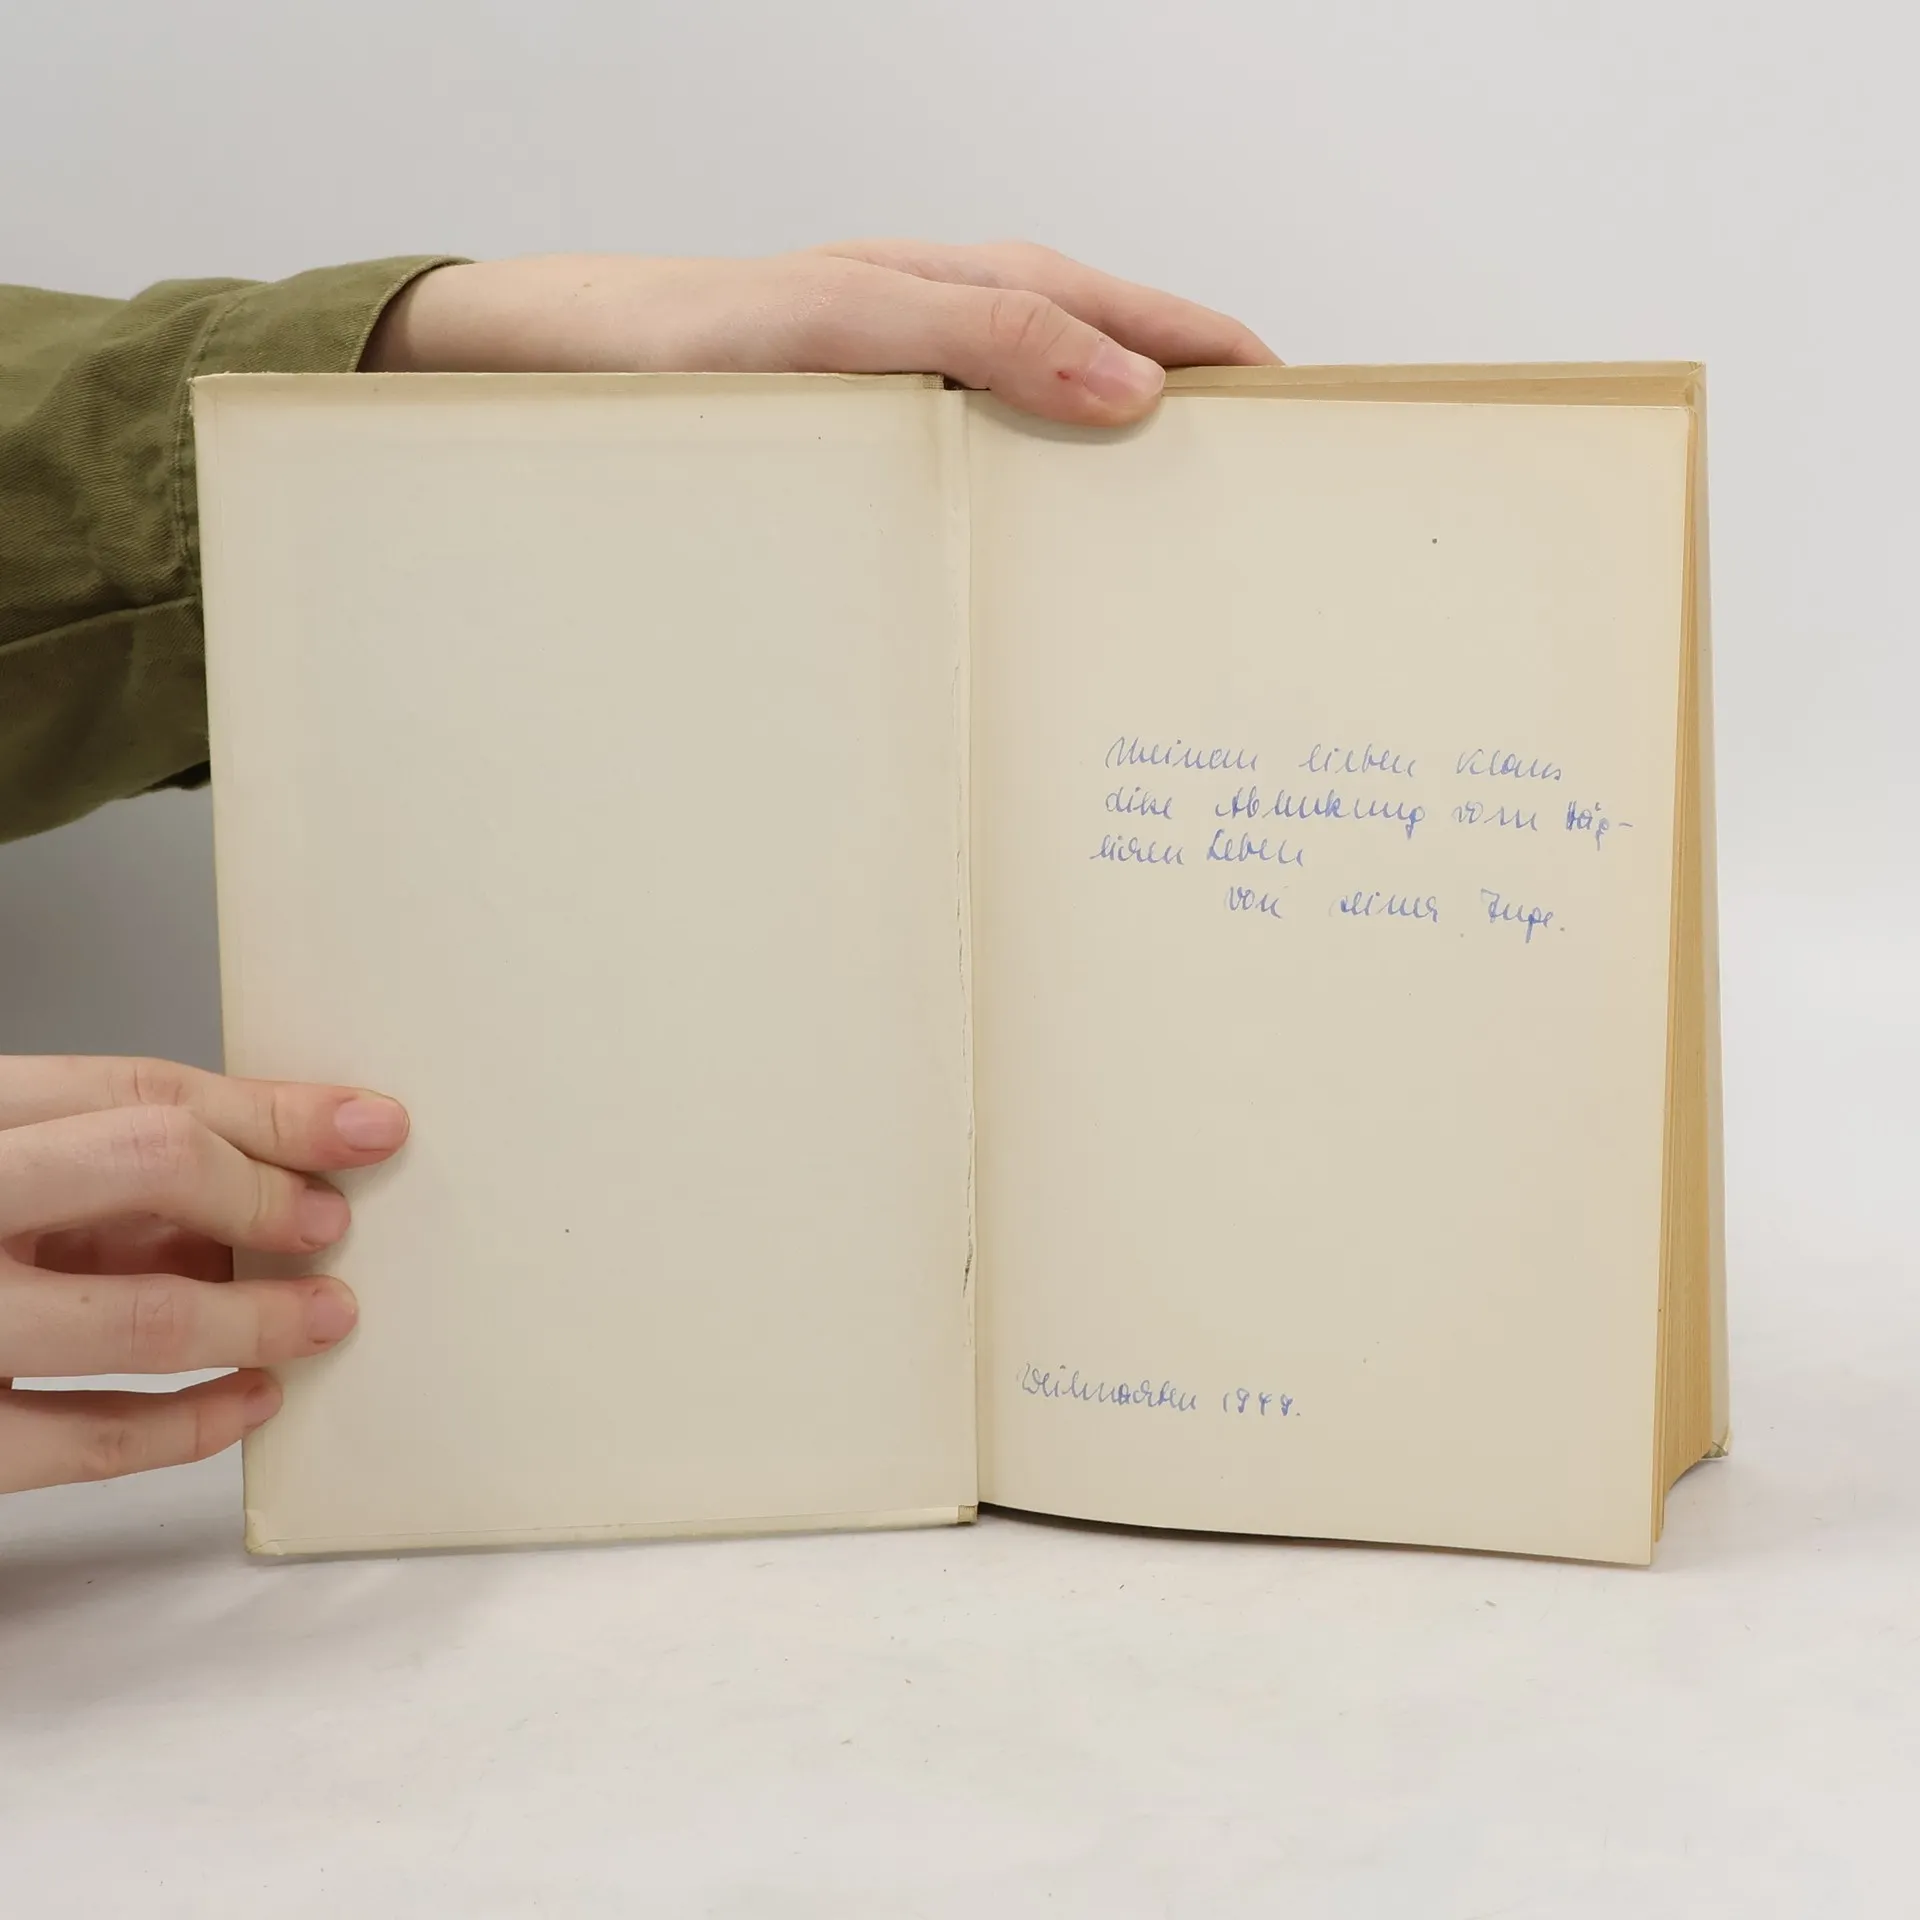 Meinem lieben Klaus
diese Ablenkung vom täg-
lichen Leben
von seiner Inge.
Weihnachten 1949.